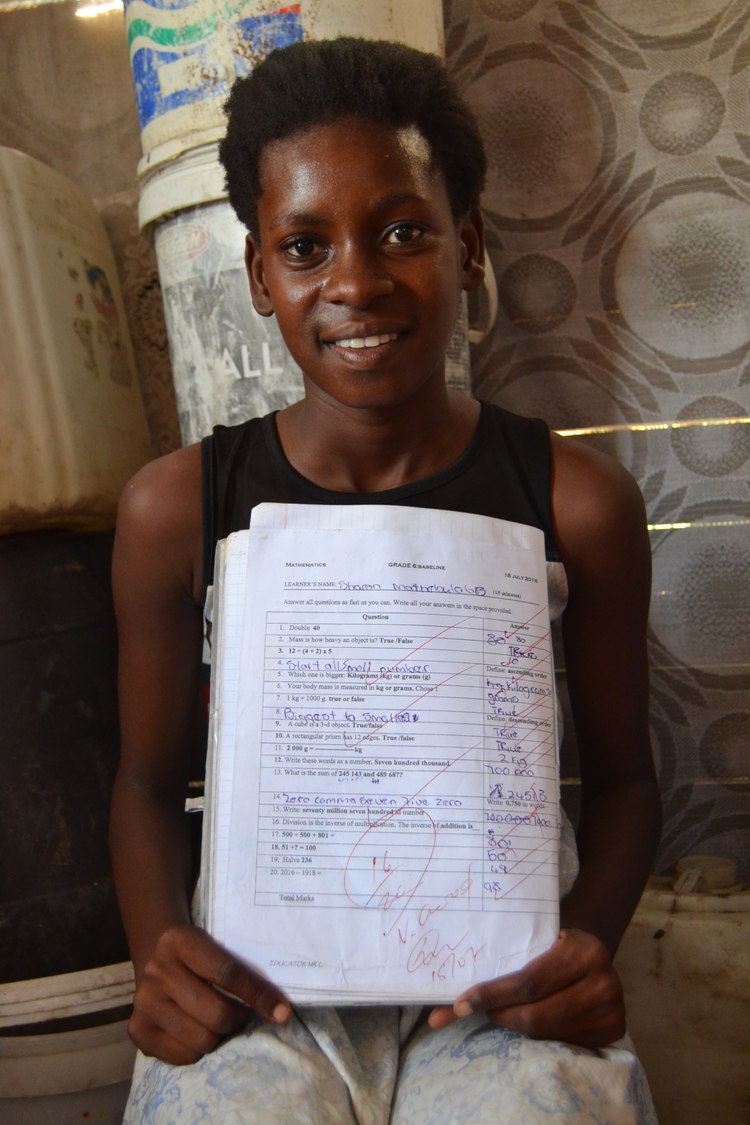 ALL
MATHEMATICS GRADE 6:BASELINE
18 JULY 2016
LEARNER'S NAME: Sharon (15 minutes)
Answer all questions as fast as you can. Write all your answers in the space provided.
Question Answer
1. Double 40 80
2. Mass is how heavy an object is? True /False True
3. 12 ÷ (4 + 2) x 5 10
4. Start all small number Define: ascending order
5. Which one is bigger: Kilograms (kg) or grams (g) Kilograms
6. Your body mass is measured in kg or grams. Chose
7. 1 kg = 1000 g. true or false True
8. Biggest to Smallest Define: descending order
9. A cube is a 3-d object. True/false True
10. A rectangular prism has 12 edges. True /false True
11. 2 000 g = ----------------kg 2 kg
12. Write these words as a number. Seven hundred thousand. 700 000
13. What is the sum of 245 143 and 489 687?
14. Zero comma seven five zero Write 0,750 in words
15. Write: seventy million seven hundred as number
16. Division is the inverse of multiplication. The inverse of addition is
17. 500 + 500 + 801 = 801
18. 51 +? = 100
19. Halve 236
20. 2016 – 1918 = 98
Total Marks
16
20
EDUCATOR MK